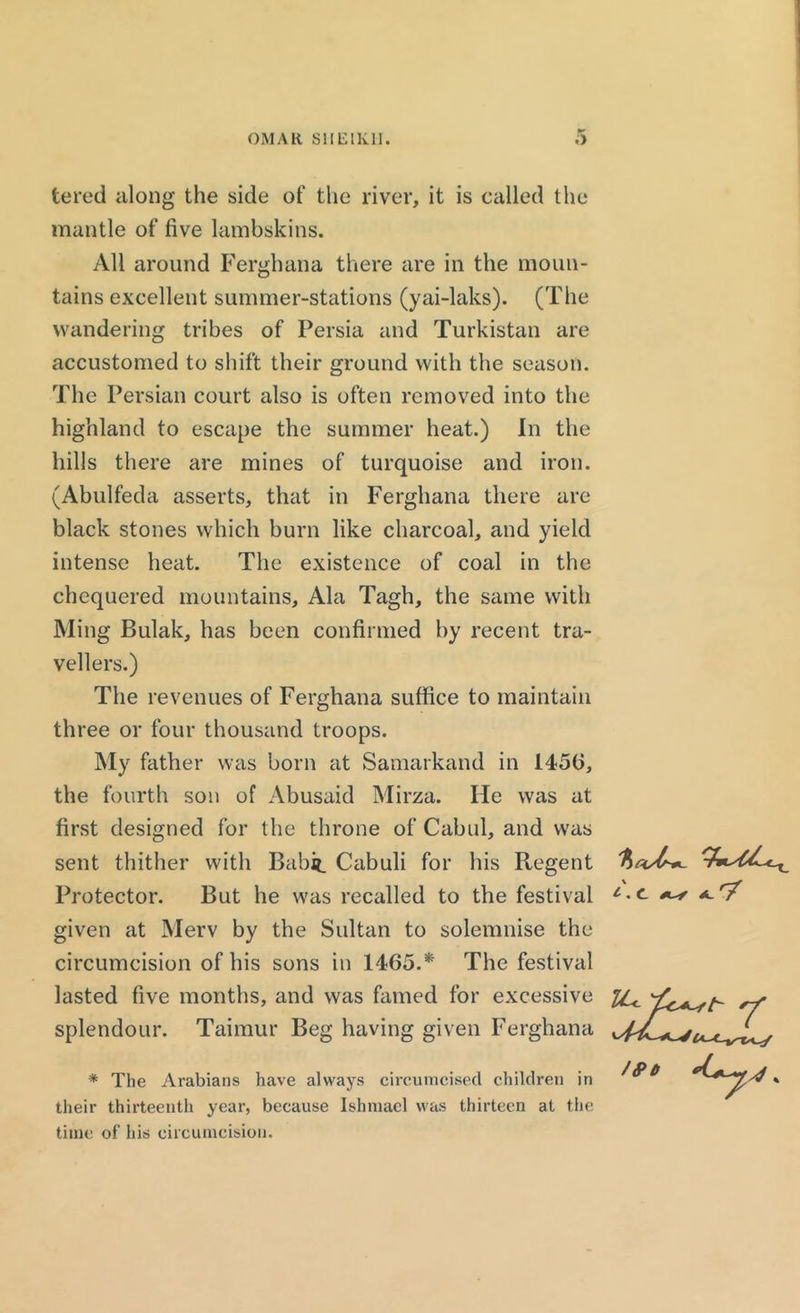 OMAR SHEIKH. 5
tered along the side of the river, it is called the
mantle of five lambskins.
All around Ferghana there are in the moun-
tains excellent summer-stations (yai-laks). (The
wandering tribes of Persia and Turkistan are
accustomed to shift their ground with the season.
The Persian court also is often removed into the
highland to escape the summer heat.) In the
hills there are mines of turquoise and iron.
(Abulfeda asserts, that in Ferghana there are
black stones which burn like charcoal, and yield
intense heat. The existence of coal in the
chequered mountains, Ala Tagh, the same with
Ming Bulak, has been confirmed by recent tra-
vellers.)
The revenues of Ferghana suffice to maintain
three or four thousand troops.
My father was born at Samarkand in 1456,
the fourth son of Abusaid Mirza. He was at
first designed for the throne of Cabul, and was
sent thither with Baba Cabuli for his Regent
Protector. But he was recalled to the festival
given at Merv by the Sultan to solemnise the
circumcision of his sons in 1465.* The festival
lasted five months, and was famed for excessive
splendour. Taimur Beg having given Ferghana
* The Arabians have always circumcised children in
their thirteenth year, because Ishmael was thirteen at the
time of his circumcision.
i.e
The feast of
days.